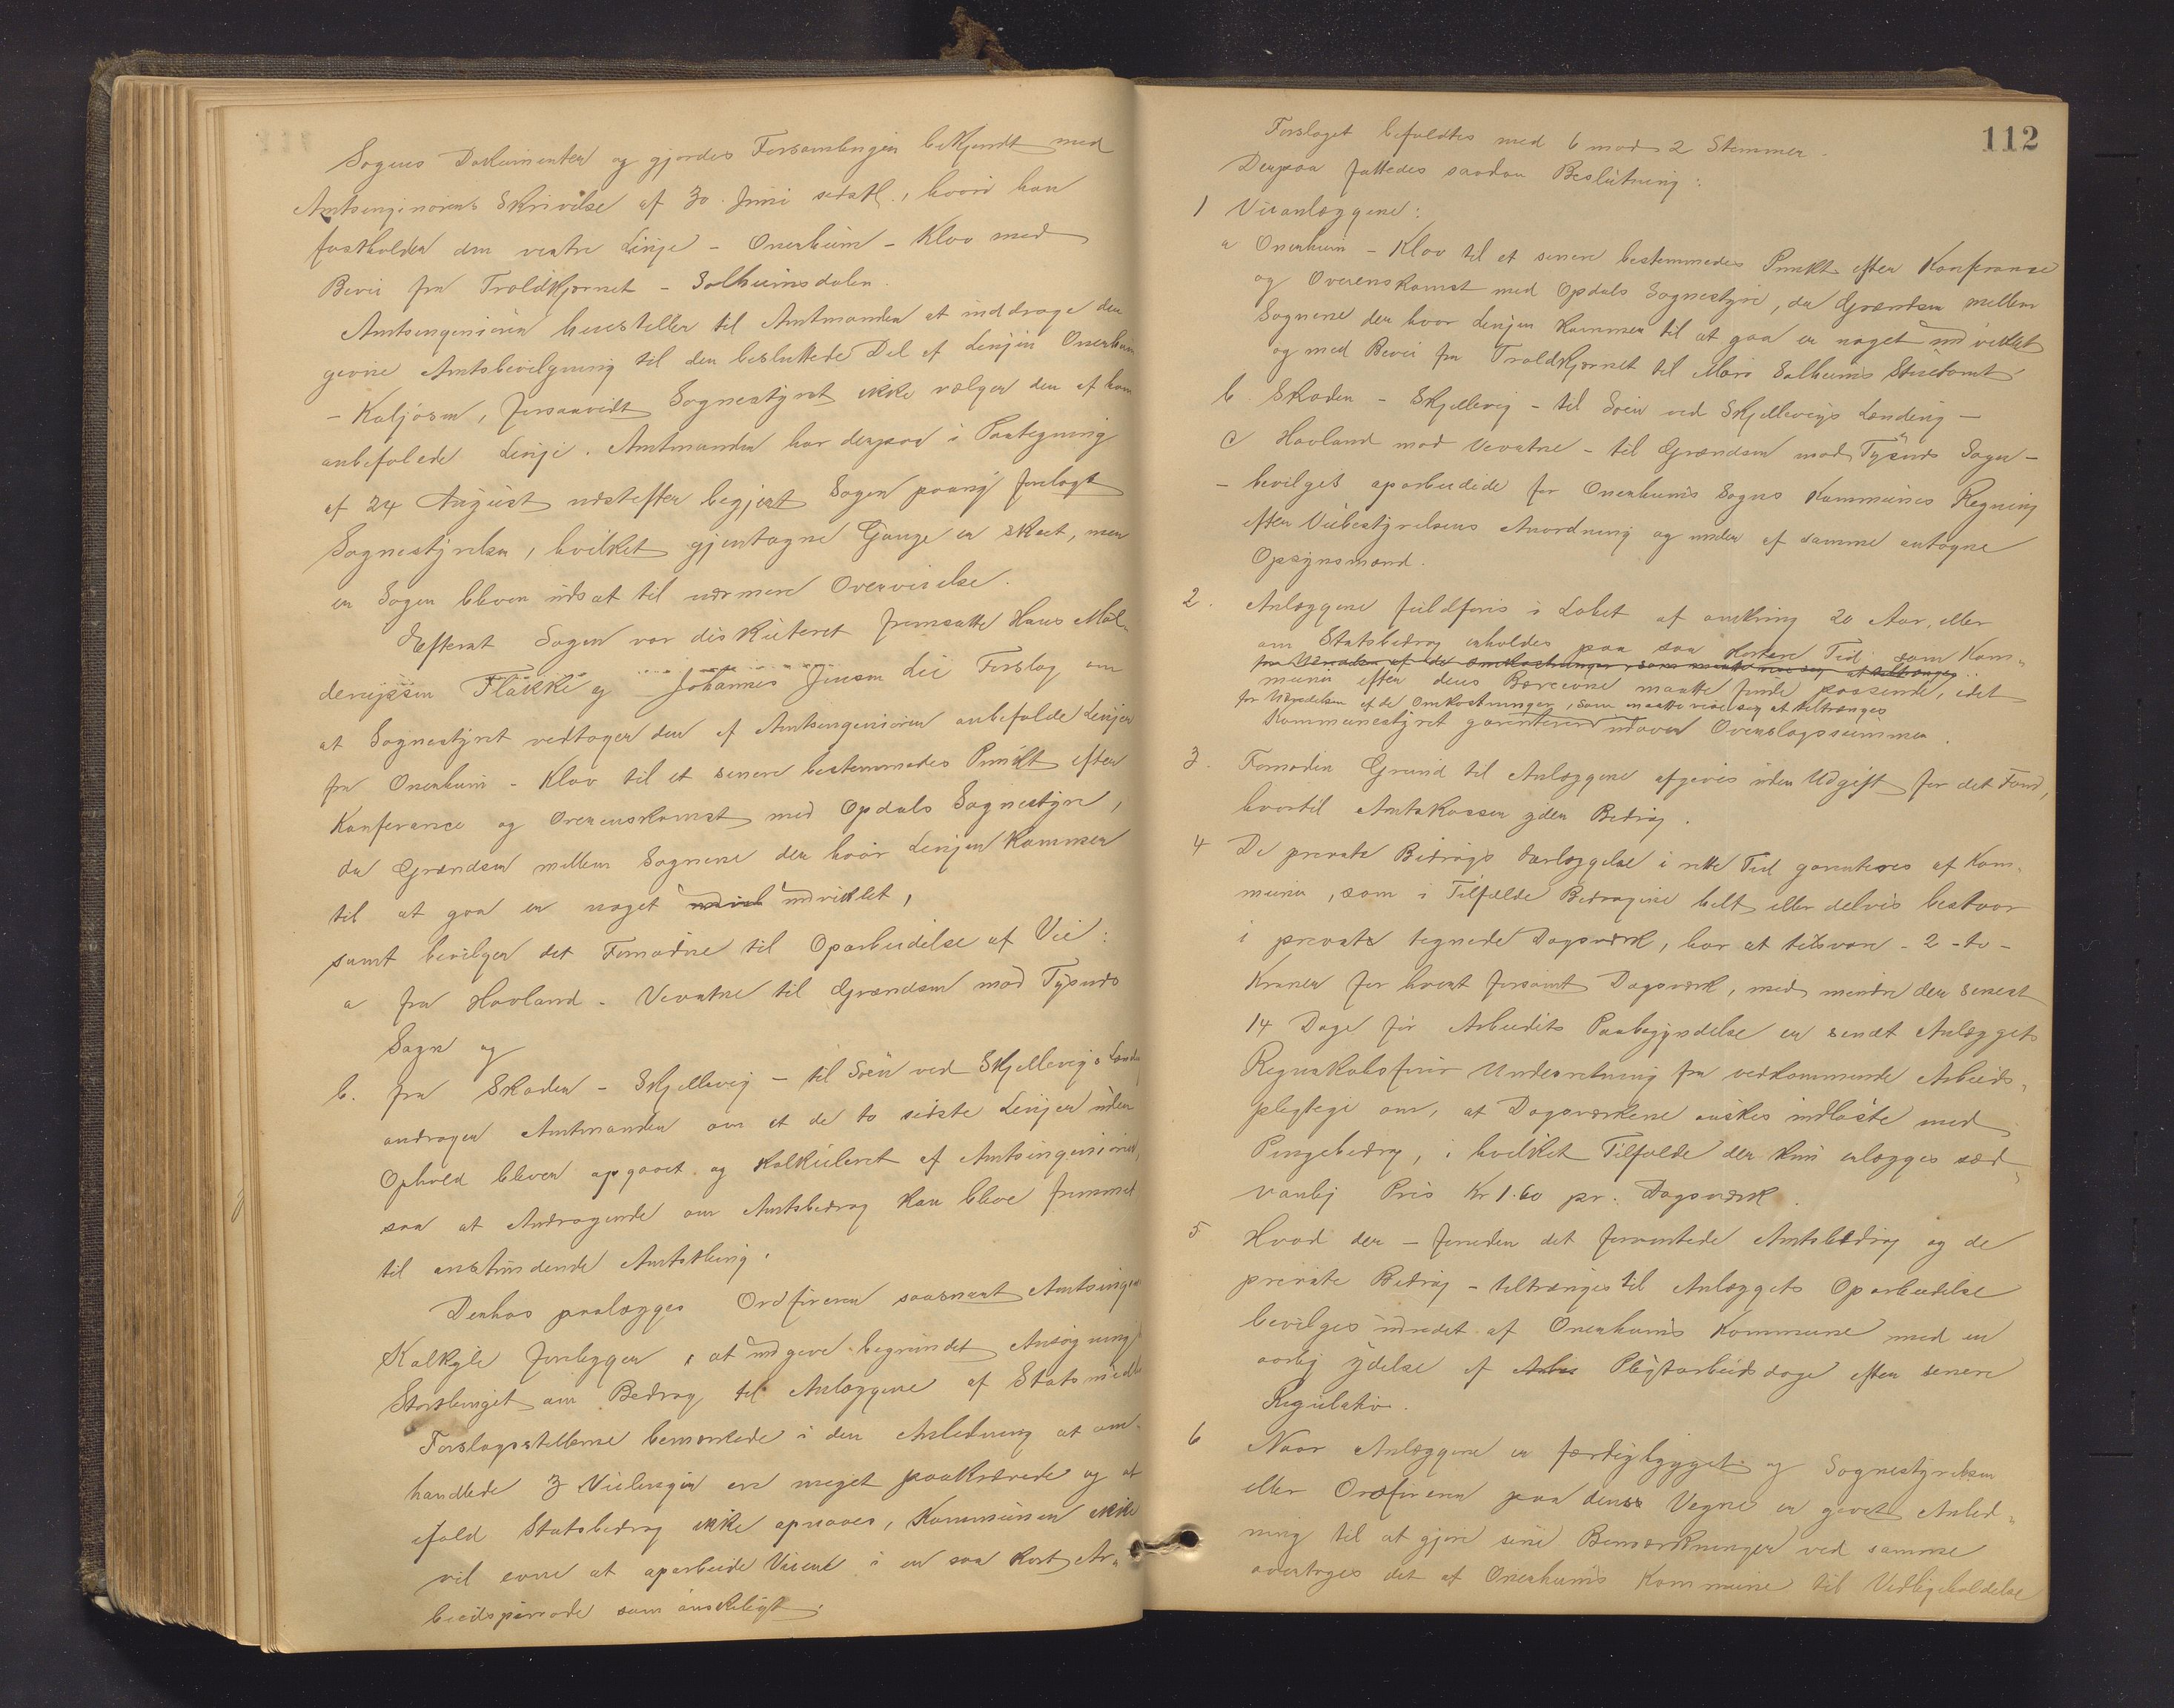 Sagens Dokumenter og gjordes Forsamlingen bekjendt med
Amtsinginørens Skrivelse af 30 Juni sidstl., hvori han
fastholder den vestre Linje - Onerheim - Klov med
Bivei fra Troldkjernet - Solheimsdalen.
Amtsingeniøren henstiller til Amtmanden at inddrage den
givne Amtsbevilgning til den besluttede Del af Linjen Onerheim
- Kaljosen, forsaavidt Sognestyret ikke vælger den af ham
anbefalede Linje. Amtmanden har derpaa i Paategning
af 24 August næstefter begjert Sagen paany forelagt
Sognestyrelsen, hvilket gjentagne Gange er skeet, men
er Sagen bleven udsat til nærmere Overveielse.
Efterat Sagen var diskuteret fremsatte Hans Mal-
denijssen Flakke og Johannes Jensen Lie Forslag om
at Sognestyret vedtager den af Amtsingeniøren anbefalde Linjen
fra Onerheim - Klov til et senere bestemmedes Punkt efter
Konferance og Overenskomst med Opdals Sognestyre,
da Grændsen mellem Sognene der hvor Linjen kommer
til at gaa er noget indviklet,
samt bevilger det Fornødne til Oparbeidelse af Vei:
a fra Hovland - Vevatne til Grændsen mod Tysnes
Sogn og
b. fra Skaden - Skjellevig - til Søen ved Skjellevigs Landing
andrager Amtmanden om at de to sidste Linjer uden
Ophold bliver opgaaet og kalkuleret af Amtsingeniøren,
saa at Andragende om Amtsbedrag kan blive fremmet
til anstundende Amtsthing.
Derhos paalægges Ordføreren saasnart Amtsingen
Kalkyle foreligger, at indgive begrundet Ansøgning
Storthinget om Bedrag til Anlæggene af Statsmidler
Forslagsstillerne bemærkede i den Anledning at om-
handlede 3 Veilinjer ere meget paakrævede og at
ifald Statsbedrag ikke opnaaes, Kommunen ikke
vil evne at oparbeide Veiene i en saa kort Ar-
beidsperiode som ønskeligt.
112
Forslaget befaldtes med 6 mod 2 Stemmer.
Derpaa fattedes saadan Beslutning:
1 Veianlæggene:
a Onerheim - Klov til et senere bestemmedes Punkt efter Konferanse
og Overenskomst med Opdals Sognestyre, da Grændsen mellem
Sognene der hvor Linjen kommer til at gaa er noget indviklet
og med Bivei fra Troldkjernet til Mari Solheims Stuetomt
b. Skaden - Skjellevig - til Søen ved Skjellevigs Landing -
c Hovland mod Vevatne - til Grændsen mod Tysnes Sogn -
- bevilges oparbeidede for Onerheims Sogns Kommunes Regning
efter Veibestyrelsens Anordning og under af samme antagne
Opsynsmænd.
2. Anlæggene fuldføres i Løbet af omkring 20 Aar, eller
om Statsbedrag erholdes paa saa kortere Tid som Kom-
munen efter dens Bæreevne maatte finde passende, idet
for Udredelsen af de Omkostninger, som maatte vise sig at tiltrænges
Kommunestyret garenterer udover Overslagssummen.
3. Fornøden Grund til Anlæggene afgives uden Udgift for det Fond,
hvortil Amtskassen yder Bedrag.
4 De private Bidrags Tærlæggelse i rette Tid garenteres af Kom-
munen, som i Tilfælde Bedragene helt eller delvis bestaar
i private tegnede Dagsværk, har at tilsvare - 2 - to -
Kroner for hvert forsømt Dagsværk, med mindre der senest
14 Dage før Arbeidets Paabegyndelse er sendt Anlæggets
Regnskabsfører Underretning fra vedkommende Arbeids-
plegtige om, at Dagsværkene ønskes indløste med
Pengebedrag, i hvilket Tilfælde der kun erlægges sæd-
vanlig Pris Kr 1.60 pr. Dagsværk.
5 Hvad der - foruden det forventede Amtsbedrag og de
private Bedrag - tiltrænges til Anlæggets Oparbeidelse
bevilges udredet af Onerheims Kommune med en
aarlig ydelse af Pligtarbeidsdage efter senere
Regulativ.
6 Naar Anlæggene er færdigbygget og Sognestyrelsen
eller Ordføreren paa dens Vegne er givet Anled-
ning til at gjøre sine Bemærkninger ved samme
overtages det af Onerheims Kommune til Vedligeholdelse